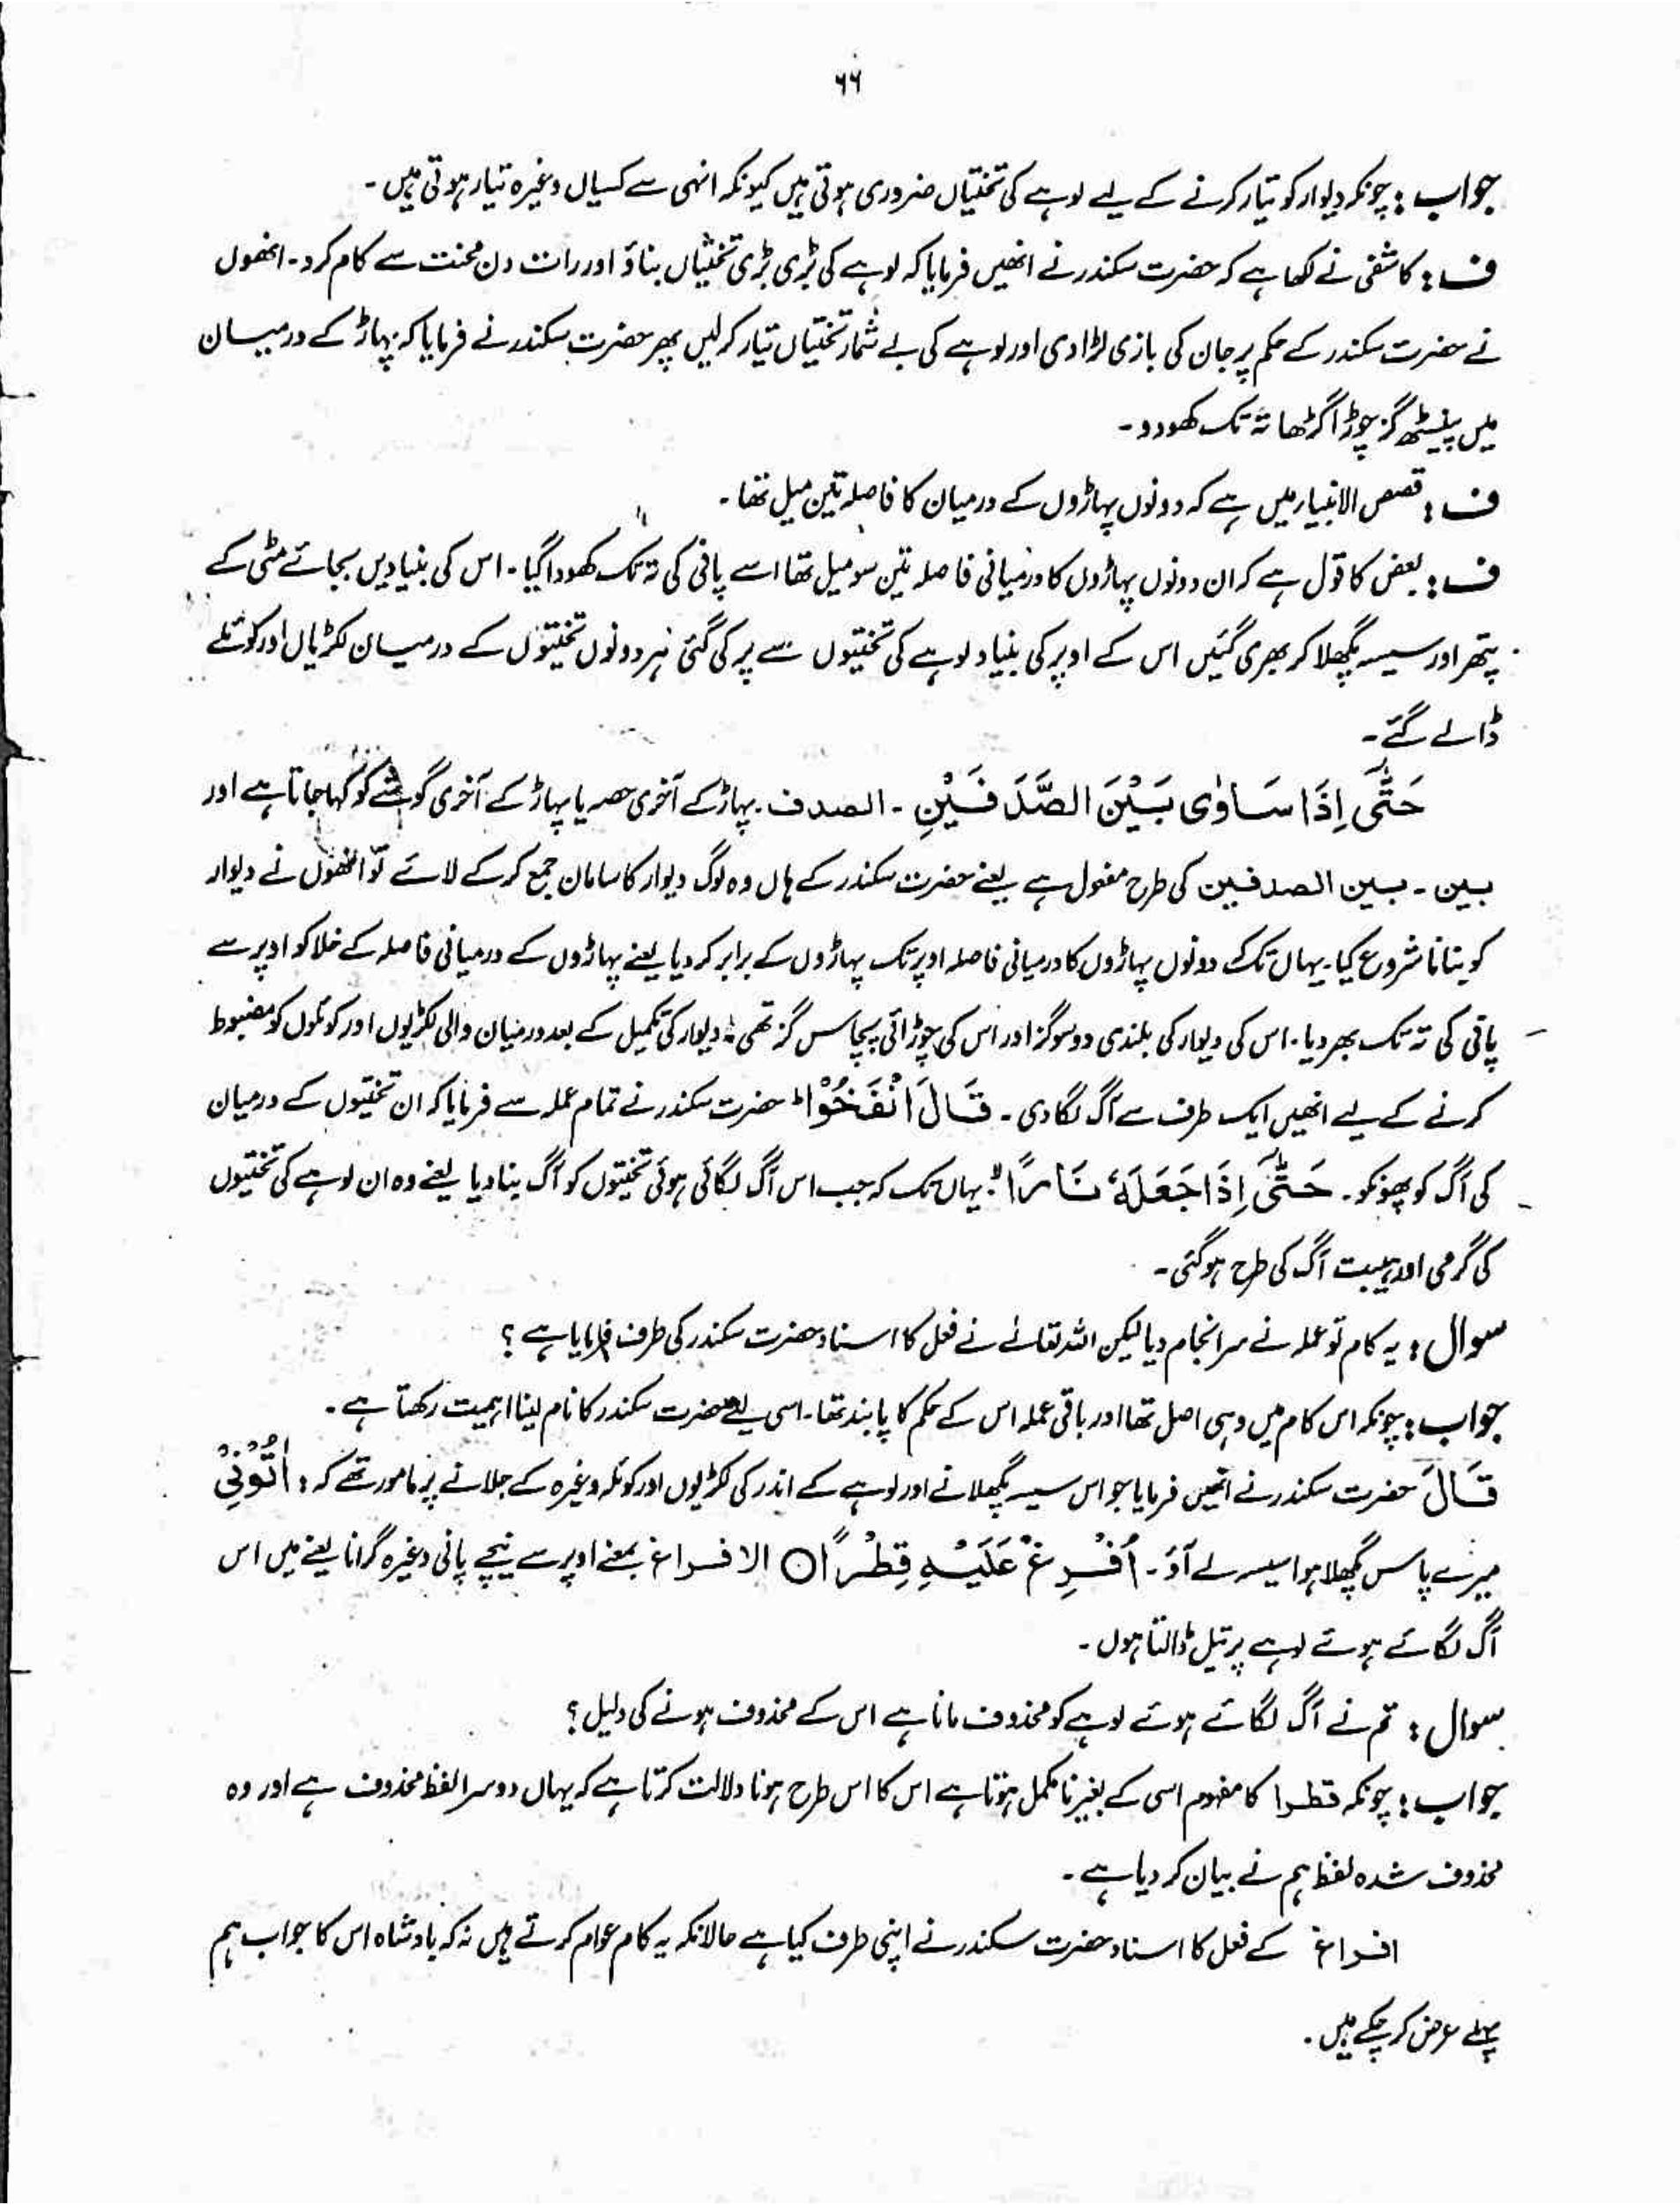 ۶۶
جواب : چونکہ دیوار کو تیار کرنے کے لیے لوہے کی تختیاں ضروری ہوتی ہیں کیونکہ انہی سے کسیاں وغیرہ تیار ہوتی ہیں ۔
ف : کاشفی نے لکھا ہے کہ حضرت سکندر نے انھیں فرمایا کہ لوہے کی بڑی بڑی تختیاں بناؤ اور رات دن محنت سے کام کرو ۔ انھوں
نے حضرت سکندر کے حکم پر جان کی بازی لڑا دی اور لوہے کی بے شمار تختیاں تیار کرلیں پھر حضرت سکندر نے فرمایا کہ پہاڑ کے درمیان
میں پینسٹھ گز چوڑا گڑھا تہ تک کھودو ۔
ف : قصص الانبیاء میں ہے کہ دونوں پہاڑوں کے درمیان کا فاصلہ تین میل تھا ۔
ف : بعض کا قول ہے کہ ان دونوں پہاڑوں کا درمیانی فاصلہ تین سو میل تھا اسے پانی کی تہ تک کھودا گیا ۔ اس کی بنیادیں بجائے مٹی کے
پتھر اور سیسہ پگھلا کر بھری گئیں اس کے اوپر کی بنیاد لوہے کی تختیوں سے پر کی گئی ہر دونوں تختیوں کے درمیان لکڑیاں اور کوئلے
ڈالے گئے ۔
حَتّٰٓى اِذَا سَاوٰى بَيْنَ الصَّدَفَيْنِ ۔ الصدف ۔ پہاڑ کے آخری حصہ یا پہاڑ کے آخری گوشے کو کہا جاتا ہے اور
بین ۔ بین الصدفین کی طرح مفعول ہے یعنے حضرت سکندر کے ہاں وہ لوگ دیوار کا سامان جمع کر کے لائے تو انھوں نے دیوار
کو بنانا شروع کیا ۔ یہاں تک کہ دونوں پہاڑوں کا درمیانی فاصلہ اوپر تک پہاڑوں کے برابر کر دیا یعنے پہاڑوں کے درمیانی فاصلہ کے خلا کو اوپر سے
پانی کی تہ تک بھر دیا ۔ اس کی دیوار کی بلندی دو سو گز اور اس کی چوڑائی پچاس گز تھی ۔ دیوار کی تکمیل کے بعد درمیان والی لکڑیوں اور کوئلوں کو مضبوط
کرنے کے لیے انھیں ایک طرف سے آگ لگا دی ۔ قَالَ انْفُخُوْاؕ حضرت سکندر نے تمام عملہ سے فرمایا کہ ان تختیوں کے درمیان
کی آگ کو پھونکو ۔ حَتّٰٓى اِذَا جَعَلَهٗ نَارًا ۙ: یہاں تک کہ جب اس آگ لگائی ہوئی تختیوں کو آگ بنا دیا یعنے وہ ان لوہے کی تختیوں
کی گرمی اور ہیبت آگ کی طرح ہو گئی ۔
سوال : یہ کام تو عملہ نے سرانجام دیا لیکن اللہ تعالےٰ نے فعل کا اسناد حضرت سکندر کی طرف فرمایا ہے ؟
جواب : چونکہ اس کام میں وہی اصل تھا اور باقی عملہ اس کے حکم کا پابند تھا ۔ اسی لیے حضرت سکندر کا نام لینا اہمیت رکھتا ہے ۔
قَالَ حضرت سکندر نے انھیں فرمایا جو اس سیسہ پگھلانے اور لوہے کے اندر کی لکڑیوں اور کوئلہ وغیرہ کے جلانے پر مامور تھے کہ : اٰتُوْنِيْٓ
میرے پاس پگھلا ہوا سیسہ لے آؤ ۔ اُفْرِغْ عَلَيْهِ قِطْرًا ○ الافراغ بمعنے اوپر سے نیچے پانی وغیرہ گرانا یعنے میں اس
آگ لگائے ہوئے لوہے پر تیل ڈالتا ہوں ۔
سوال : تم نے آگ لگائے ہوئے لوہے کو محذوف مانا ہے اس کے محذوف ہونے کی دلیل ؟
جواب : چونکہ قطرا کا مفہوم اسی کے بغیر نامکمل ہوتا ہے اس کا اس طرح ہونا دلالت کرتا ہے کہ یہاں دوسرا لفظ محذوف ہے اور وہ
محذوف شدہ لفظ ہم نے بیان کر دیا ہے ۔
افراغ کے فعل کا اسناد حضرت سکندر نے اپنی طرف کیا ہے حالانکہ یہ کام عوام کرتے ہیں نہ کہ بادشاہ اس کا جواب ہم
پہلے عرض کر چکے ہیں ۔